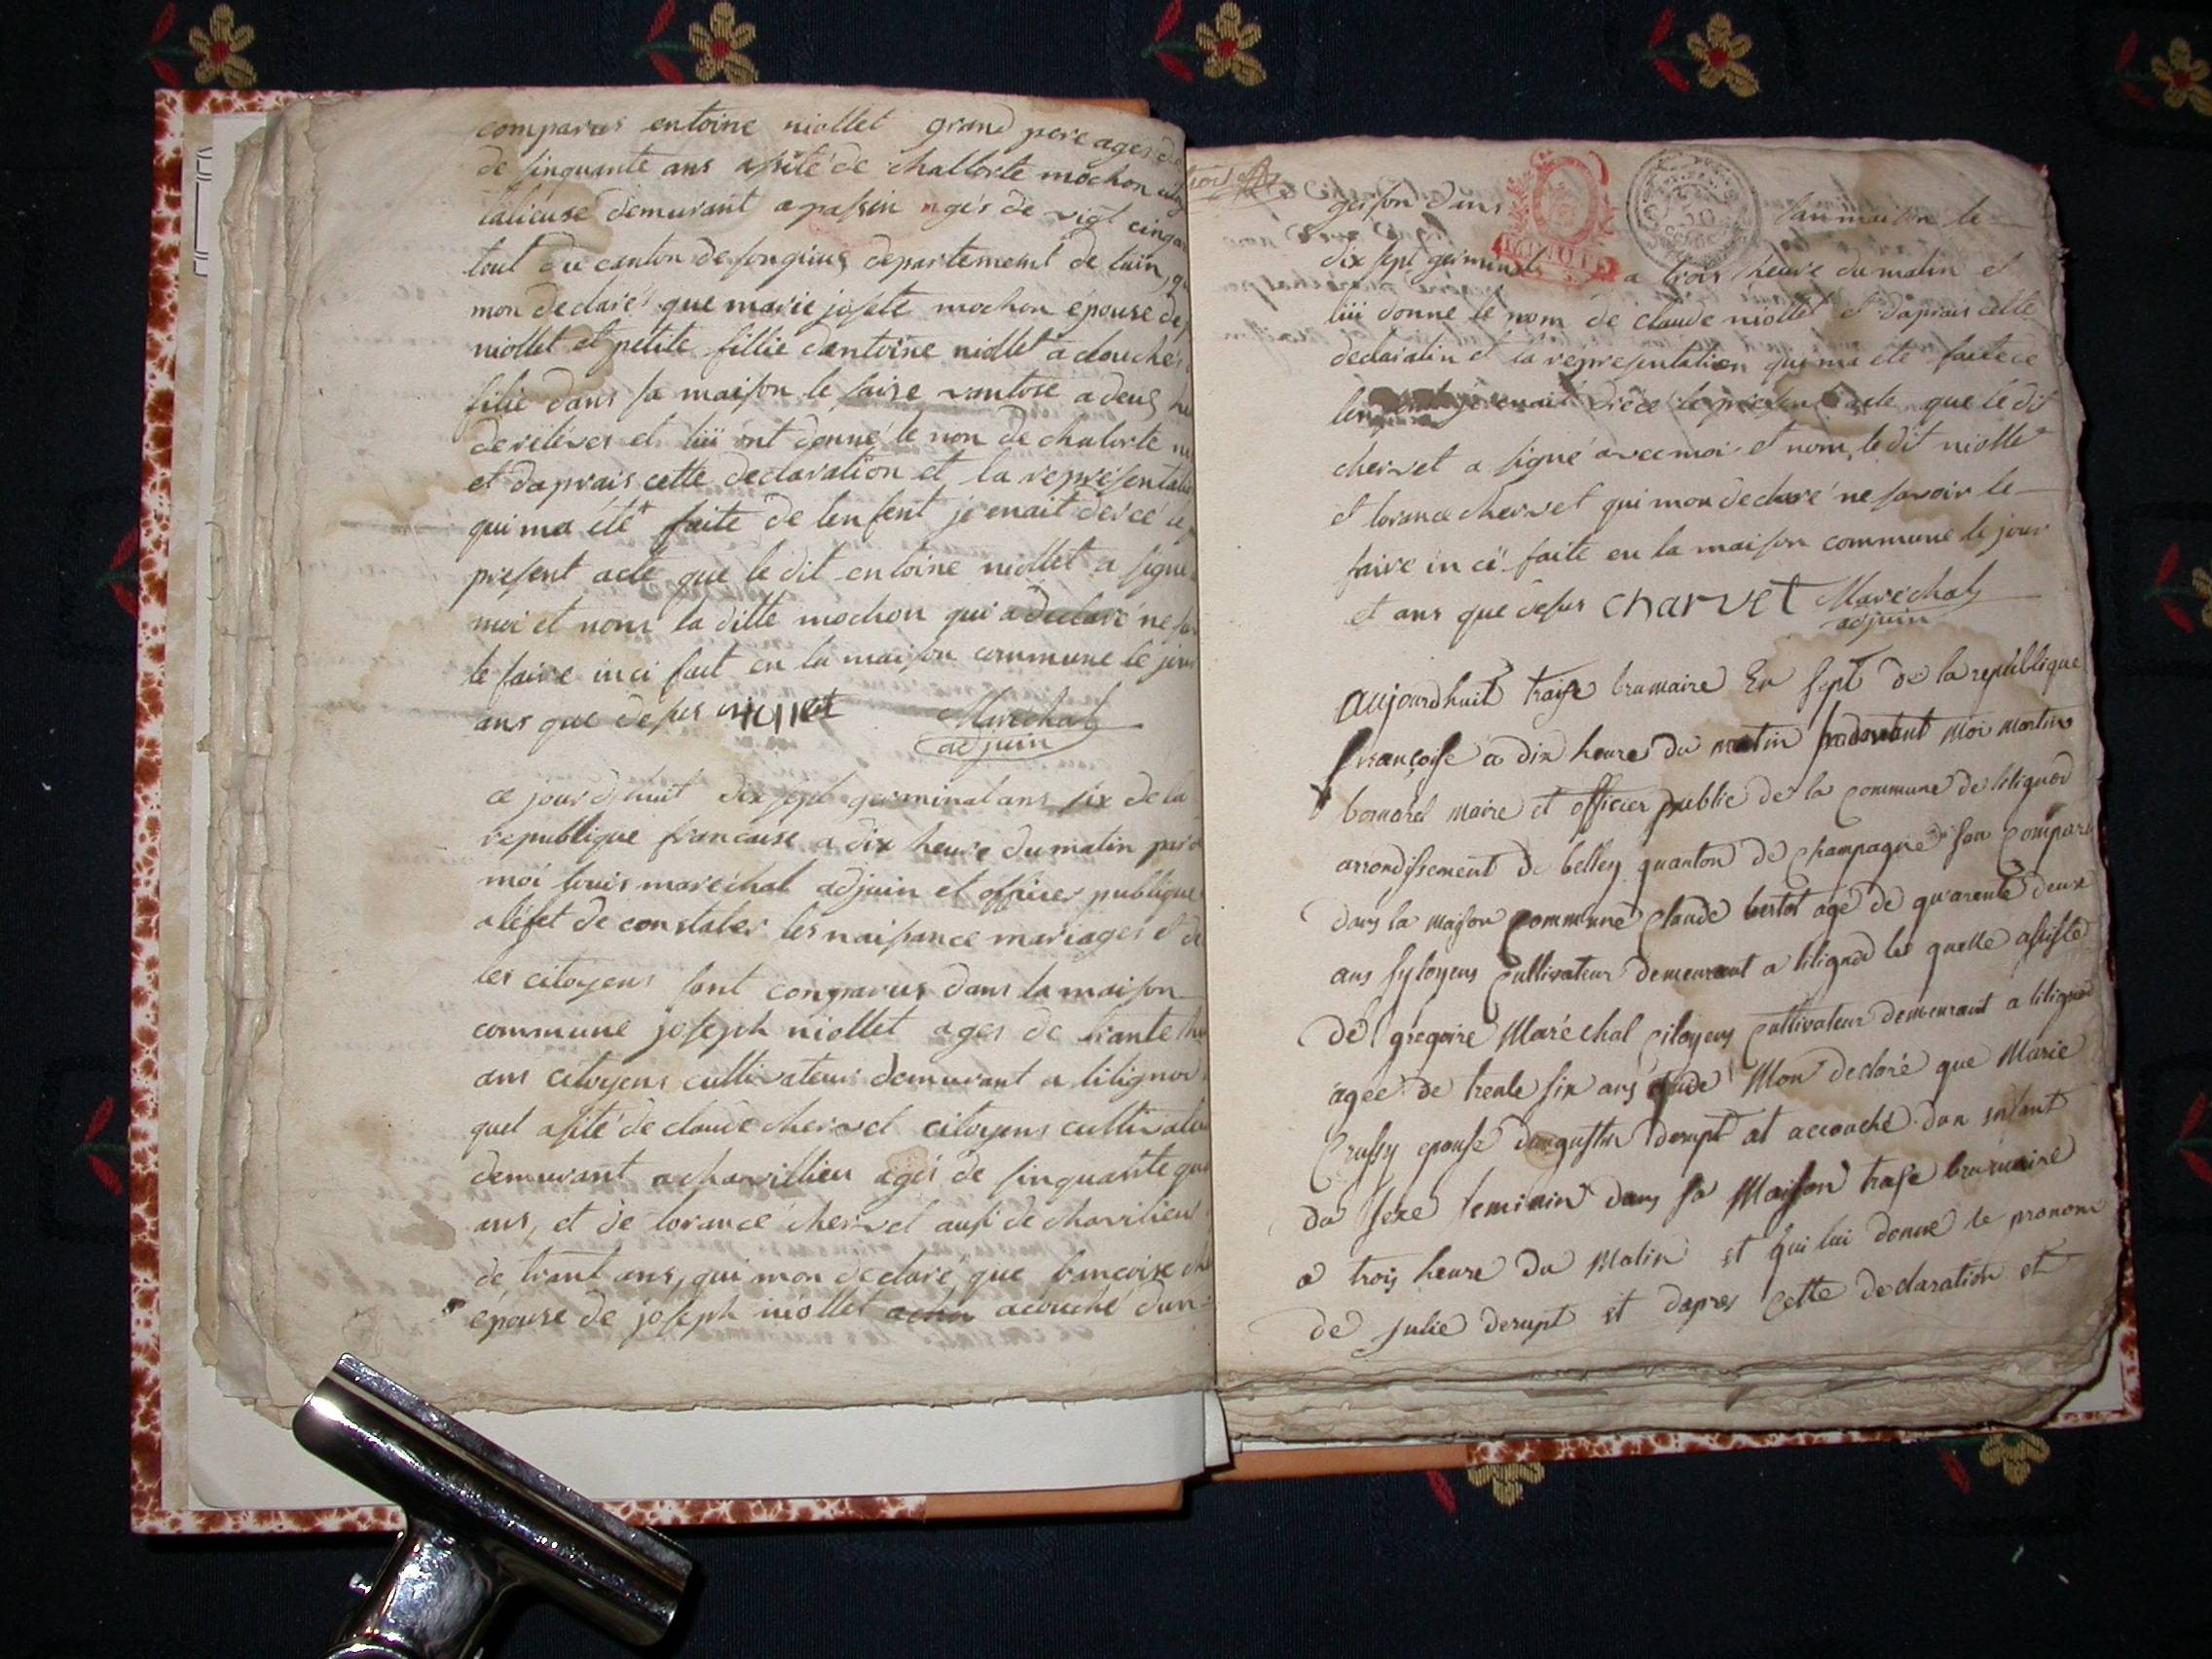 comparus entoine niollet grand pere ages de
de sinquante ans assité de challorte mochon
demurant a passin ages de vigt cinq
tout du canton de songieus departement de lain
mon declarés que marie josete mochon epouse de
niollet et petite fillie dantoine niollet acouches
filie dans sa maison le saize vantose a deus
et lüi ont donné le non de chalorte
et daprais cette declaration et la represent
qui ma été faite de lenfent jenait
present acte que le dit entoine niollet a signe
moi et nom la ditte mochon qui a declaré ne
le faire inci fait en la maison commune le jour
ans que desus niollet Maréchal
adjuin
ce jourdshuit dix sept germinal ans six de la
republique francaise a dix heure du matin par d
moi louis maréchal adjuin et officier publique
a léfet de constater les naissance mariages et d
les citoyens sont comparus dans la maison
commune joseph niollet ages de trante
ans citoyens cultivateur demurant a lilignod
quel asité de claude chervet citoyens cultivate
demurant a chavillieu agés de sinquante qu
ans, et de lorance chervet ausi de chavilieu
de trant ans, qui mon declaré que francoise
épouse de joseph niollet acouché dun
garson dans sam maison le
dix sept germinal a trois heure du matin et
lüi donne le nom de claude niollet et daprais cette
declaratin et la representation qui ma été faite de
len jenait le présen acte que le dit
chervet a signé avec moi et nom le dit niollet
et lorance chervet qui mon declaré ne savoir le
faire in ci faite en la maison commune le jour
et ans que desus charvet Maréchal
adjuin
aujourdhuit traise brumaire En sept de la republique
françoise a dix heure du matin moi martin
bornarel maire et officier public de la commune de lilignod
arrondissement de belley quanton de Champagne son compar
dans la maison commune Claude bertet agé de quarente deux
ans sytoyens Cultivateur demeurant a lilignod les quelle assisté
de gregoire Maréchal Citoyens Cultivateur demeurant a lilignod
agée de trente six ans Mon declaré que Marie
Crussy epouse daugustin derupt at accouché dan enfant
du sexe feminin dans sa Maison traise brumaire
a trois heure du Matin et qui lui donne le pronom
de julie derupt et dapres Cette declaration et